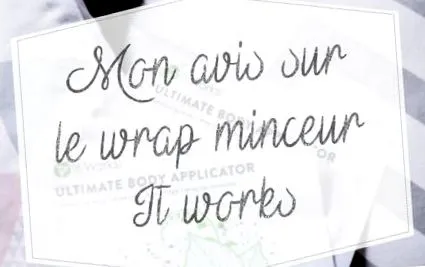 Mon avis sur
ULTIMATE BODY
le wrap minceur
It Works
ULTIMATE BODY APPLICATOR
It works